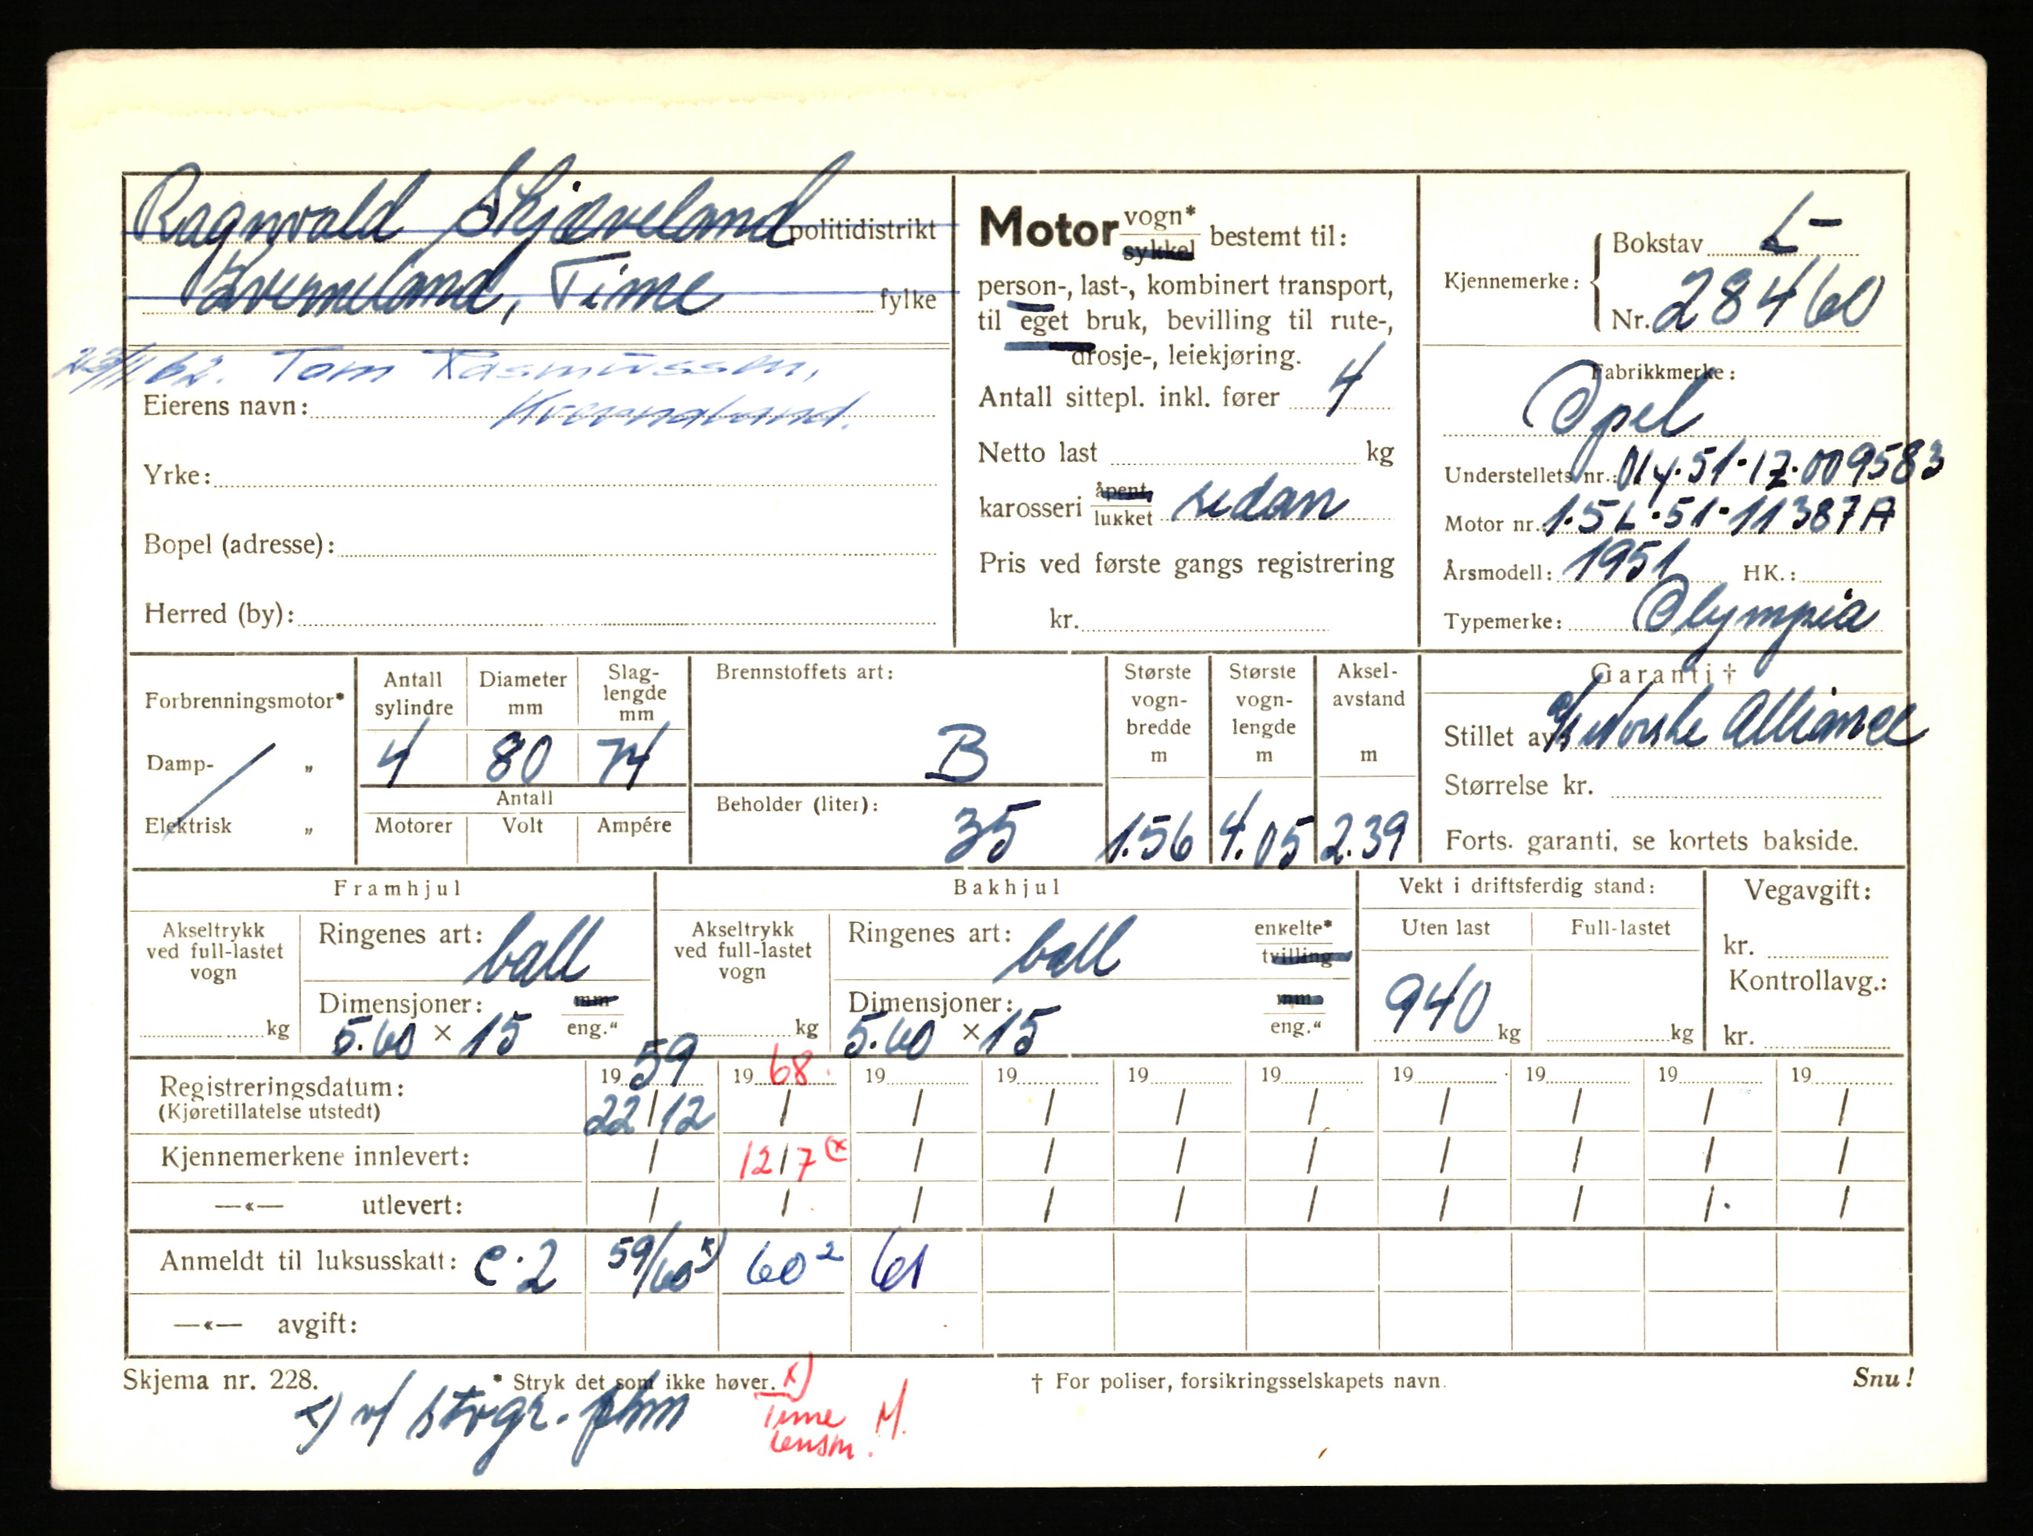 Ragnvald Skjæveland politidistrikt
Kverneland, Time fylke
23/11 62. Tom Rasmussen,
Eierens navn: Kverneland.
Yrke:
Bopel (adresse):
Herred (by):
Motor vogn* sykkel bestemt til:
person-, last-, kombinert transport,
til eget bruk, bevilling til rute-,
drosje-, leiekjøring.
Antall sittepl. inkl. fører 4
Netto last kg
karosseri åpent, lukket sedan
Pris ved første gangs registrering
kr.
Kjennemerke: Bokstav L-
Nr. 28460
Fabrikkmerke:
Opel
Understellets nr.: Oly-51-1Z-009583
Motor nr.: 1.5L-51-11387A
Årsmodell: 1951 HK.:
Typemerke: Olympia
Forbrenningsmotor*
Damp- „
Elektrisk „
Antall sylindre 4
Diameter mm 80
Slaglengde mm 74
Antall
Motorer Volt Ampére
Brennstoffets art:
B
Beholder (liter):
35
Største vogn-bredde m 1.56
Største vogn-lengde m 4.05
Aksel-avstand m 2.39
Garanti †
Stillet av: Norske Alliance
Størrelse kr.
Forts. garanti, se kortets bakside.
Framhjul
Akseltrykk ved full-lastet vogn kg
Ringenes art: ball
Dimensjoner: mm
5.60 × 15 eng."
Bakhjul
Akseltrykk ved full-lastet vogn kg
Ringenes art: ball enkelte* tvilling
Dimensjoner: mm
5.60 × 15 eng."
Vekt i driftsferdig stand:
Uten last Full-lastet
940 kg kg
Vegavgift:
kr.
Kontrollavg.:
kr.
Registreringsdatum: 19 59 19 68. 19 19 19 19 19 19 19 19
(Kjøretillatelse utstedt) 22/12 / / / / / / / / /
Kjennemerkene innlevert: / 12/7 (x / / / / / / / /
—«— utlevert: / / / / / / / / / /
Anmeldt til luksusskatt: C.2 59/60 x) 60 2 61
—«— avgift:
Skjema nr. 228. * Stryk det som ikke høver. † For poliser, forsikringsselskapets navn. Snu!
x) v/ stvgr. phm
x)
Time M.
lensm.